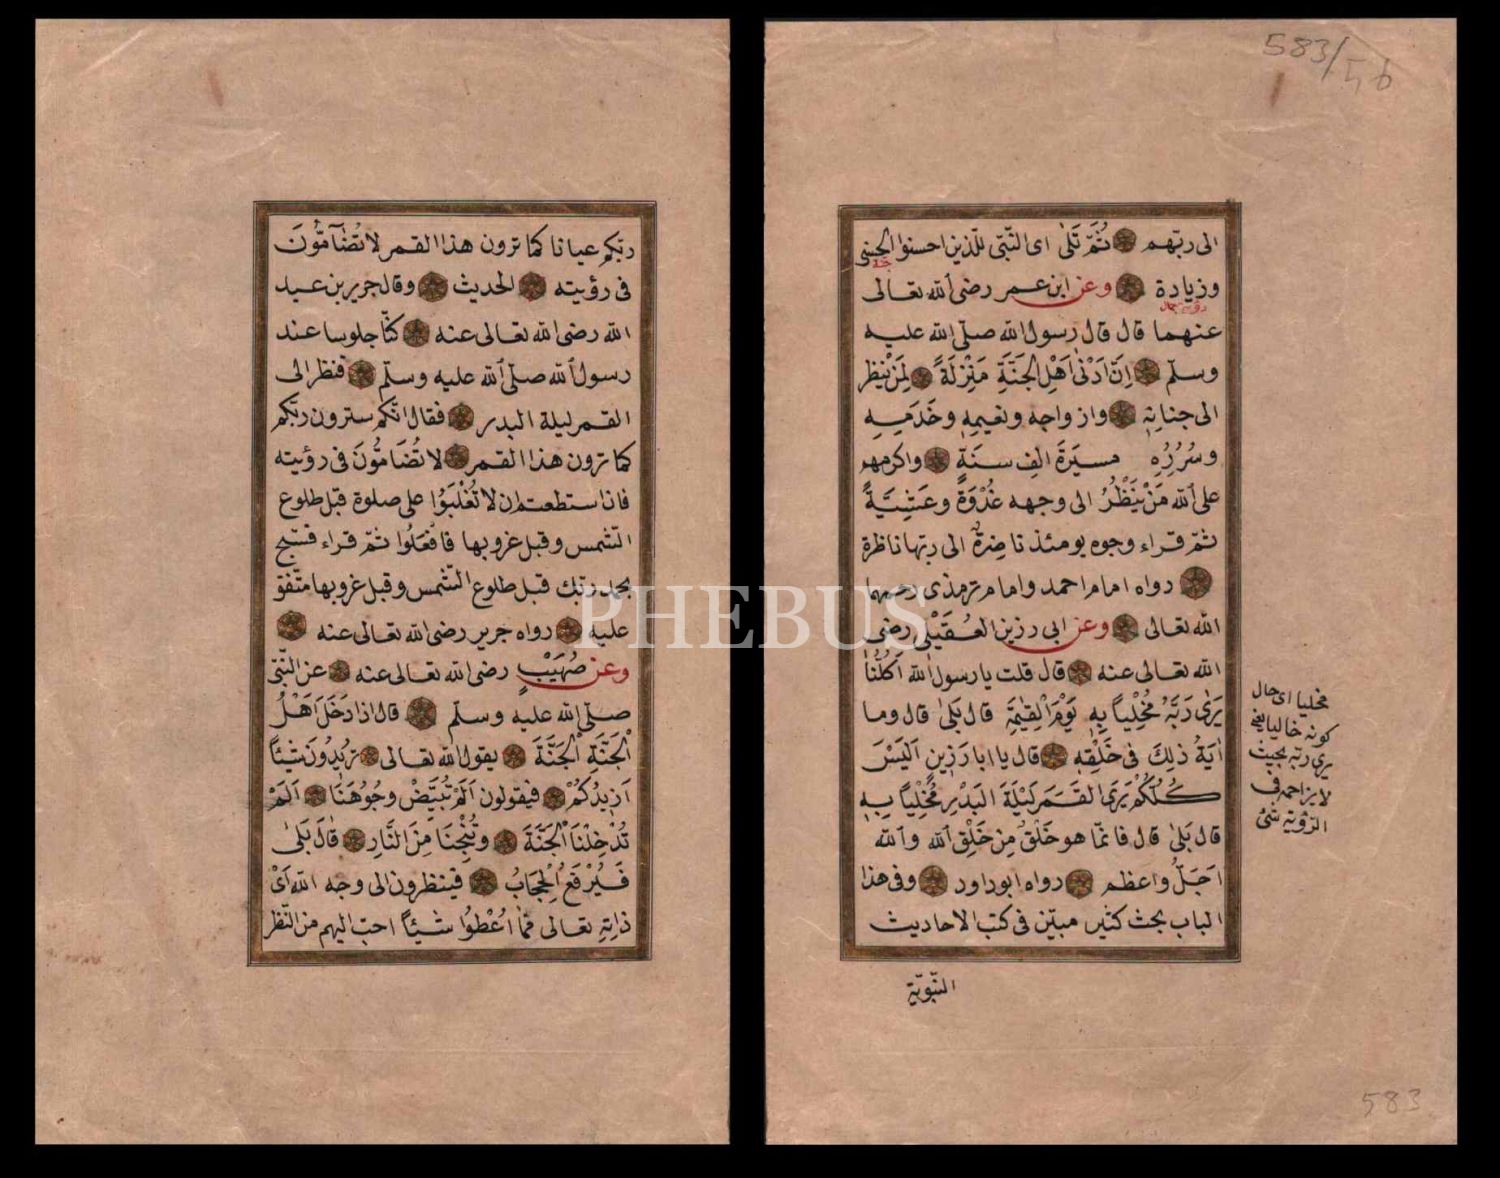 ربكم عيانا كما ترون هذا القمر لا تُضَآمُّونَ
فى رؤيته الحديث وقال جرير بن عبد
الله رضى الله تعالى عنه كنّا جلوسا عند
رسول الله صلّى الله عليه وسلّم فنظر الى
القمر ليلة البدر فقال انّكم سترون ربّكم
كما ترون هذا القمر لا تُضَامُّونَ فى رؤيته
فان استطعتم ان لا تُغْلَبُوا على صلوة قبل طلوع
الشمس وقبل غروبها فافْعَلُوا ثمّ قراء فسبّح
بحمد ربّك قبل طلوع الشّمس وقبل غروبها متّفق
عليه رواه جرير رضى الله تعالى عنه
وعن صُهَيْبٍ رضى الله تعالى عنه عن النّبىّ
صلّى الله عليه وسلّم قال اذا دَخَلَ اَهْلُ
الْجَنَّةِ الْجَنَّةَ يقول الله تعالى تُرِيدُونَ شَيْئاً
اَزِيدُكُمْ فيقولون اَلَمْ تُبَيِّضْ وُجُوهَنَا اَلَمْ
تُدْخِلْنَا الْجَنَّةَ وَتُنْجِنَا مِنَ النَّارِ قَالَ بَلىٰ
فَيُرْفَعُ الْحِجَابُ فينظرون الى وجه الله اَىْ
ذاتِهِ تعالى فمّا اُعْطُوا شَيْئاً احبّ اليهم من النّظر
583/56
الى ربّهم ثُمَّ تَلىٰ اى النّبىّ للّذين احسنوا الحسنى
جنة
وزيادة وعن ابن عمر رضى الله تعالى
عنهما قال قال رسول الله صلّى الله عليه
وسلّم اِنّ اَدْنىٰ اَهْلِ الجَنَّةِ مَنْزِلَةً لَمَنْ يَنْظر
الى جنانِهِ وازواجِهِ ونعيمِهِ وخَدَمِهِ
وسُرُرِهِ مسيرَةَ الفِ سنَةٍ واكرمهم
على الله مَنْ يَنْظُرُ الى وجهه غُدْوَةً وعَشِيَّةً
ثمّ قراء وجوه يومئذ ناضِرةٌ الى ربّها ناظرة
رواه امام احمد وامام ترمذى رحمهما
الله تعالى وعن ابى رزين العُقَيْلى رضى
الله تعالى عنه قال قلت يا رسول الله اَكُلُّنَا
يَرىٰ رَبَّهُ مُخْلِياً بِهِ يَوْمَ القِيمَةِ قال بَلىٰ قال وما
اٰيَةُ ذٰلِكَ فى خَلْقِهِ قال يا ابا رَزِينٍ اَلَيْسَ
كُلُّكُمْ يَرىَ القَمَرَ لَيْلَةَ البَدْرِ مُخْلِياً بِهِ
قال بَلىٰ قال فانّما هو خَلْقٌ مِنْ خَلْقِ الله والله
اَجَلُّ واعظم رواه ابو داود وفى هذا
الباب بحث كثير مبيّن فى كتب الاحاديث
النّبويّة
مخليا اى حال
كونه خاليا يعنى
يرى ربّه بحيث
لا يزاحمه فى
الرّؤية شئ
583
PHEBUS